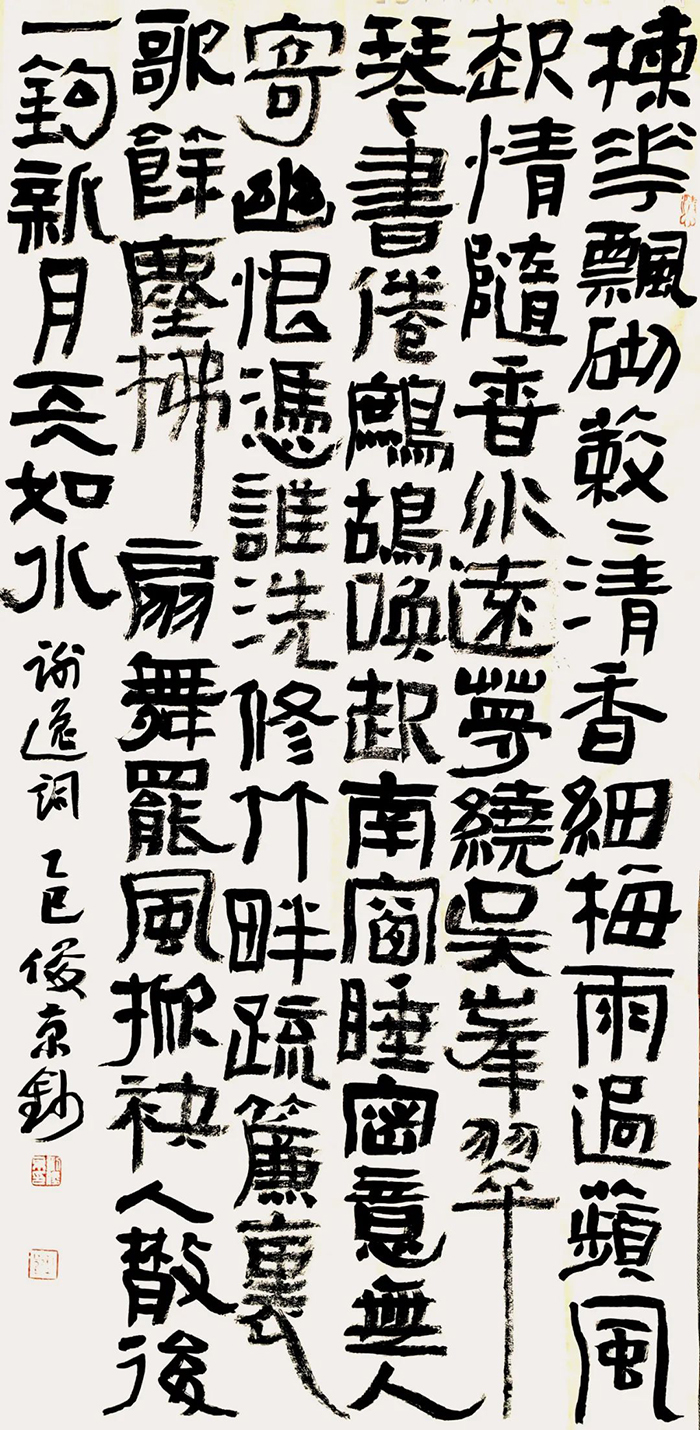 楝花飄砌蔌〻清香細梅雨過蘋風
起情隨香水遠夢繞吳峯翠
琴書倦鷓鴣喚起南窗睡密意無人
寄幽恨憑誰洗修竹畔疏簾裏
歌餘塵拂扇舞罷風掀袂人散後
一鉤新月天如水 謝逸詞 乙巳俊京鈔